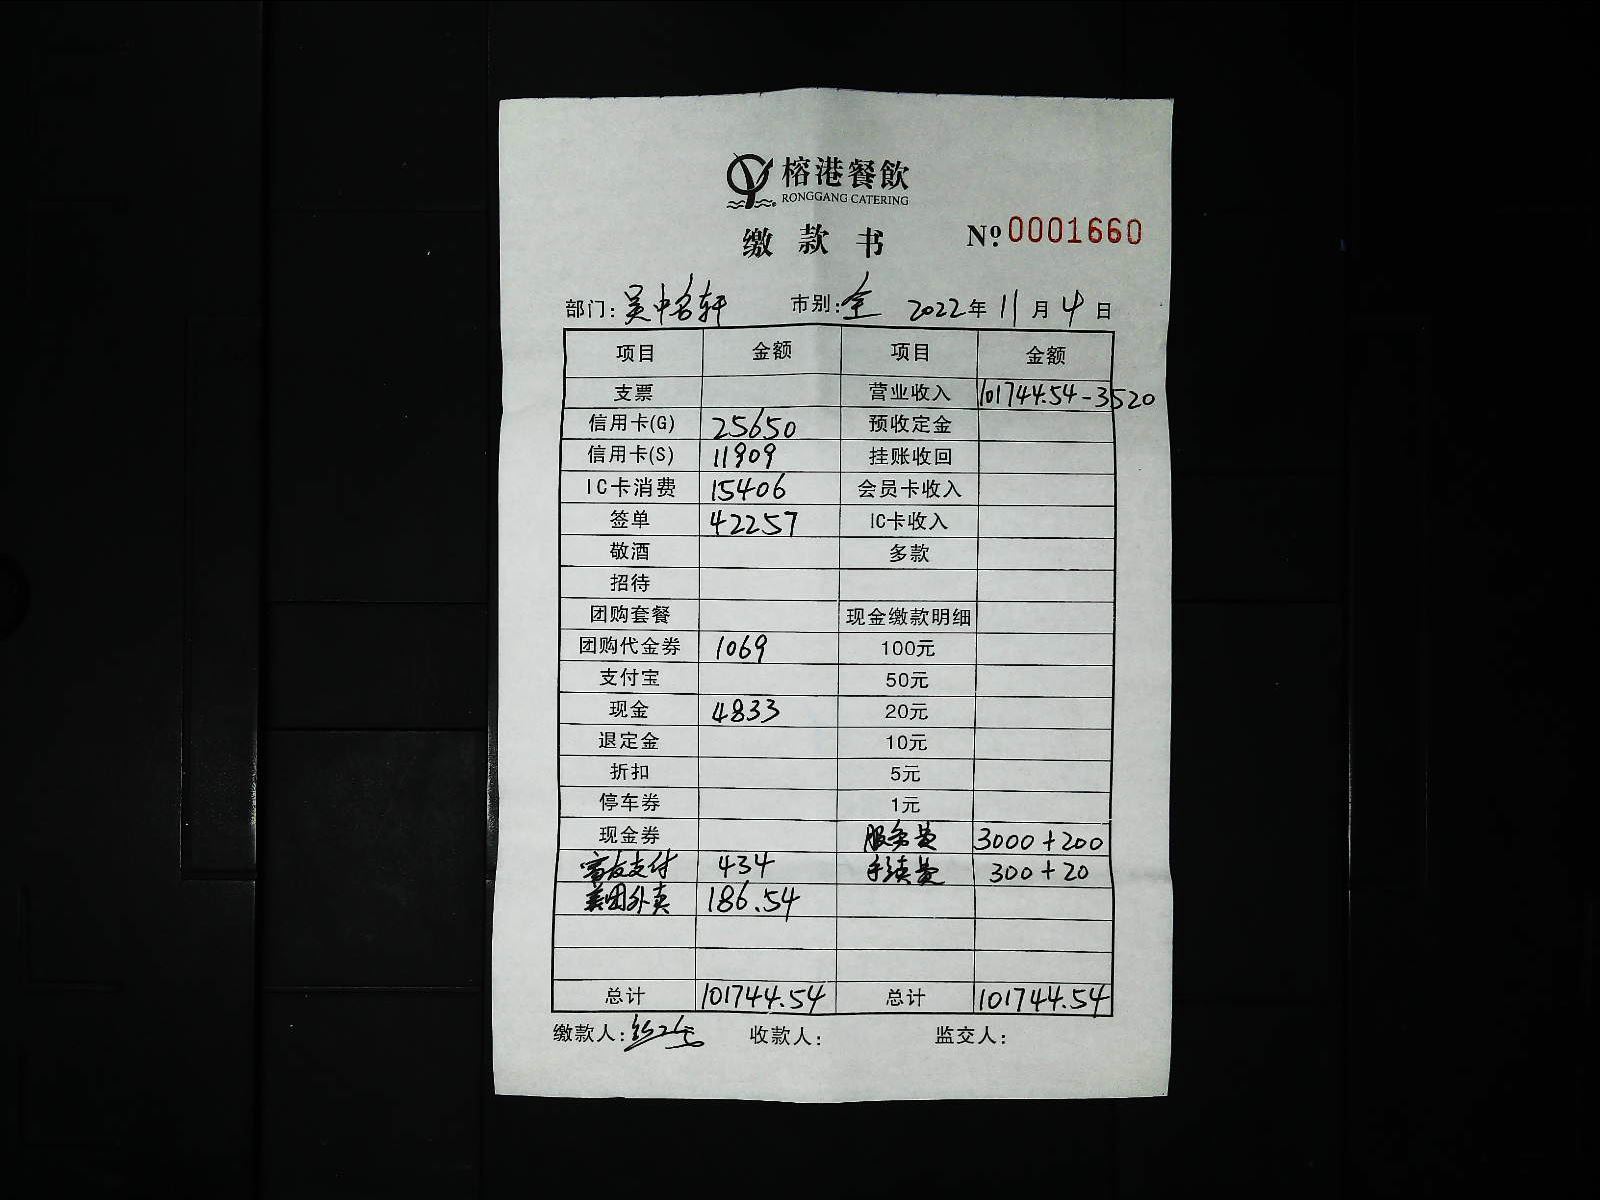 榕港餐飲
RONGGANG CATERING
缴款书 №0001660
部门:吴中名轩 市别:全 2022年11月4日
项目 金额 项目 金额
支票 营业收入 101744.54-3520
信用卡(G) 25650 预收定金
信用卡(S) 11909 挂账收回
IC卡消费 15406 会员卡收入
签单 42257 IC卡收入
敬酒 多款
招待
团购套餐 现金缴款明细
团购代金券 1069 100元
支付宝 50元
现金 4833 20元
退定金 10元
折扣 5元
停车券 1元
现金券 服务费 3000+200
支付 434 手续费 300+20
美团外卖 186.54
总计 101744.54 总计 101744.54
缴款人: 收款人: 监交人: